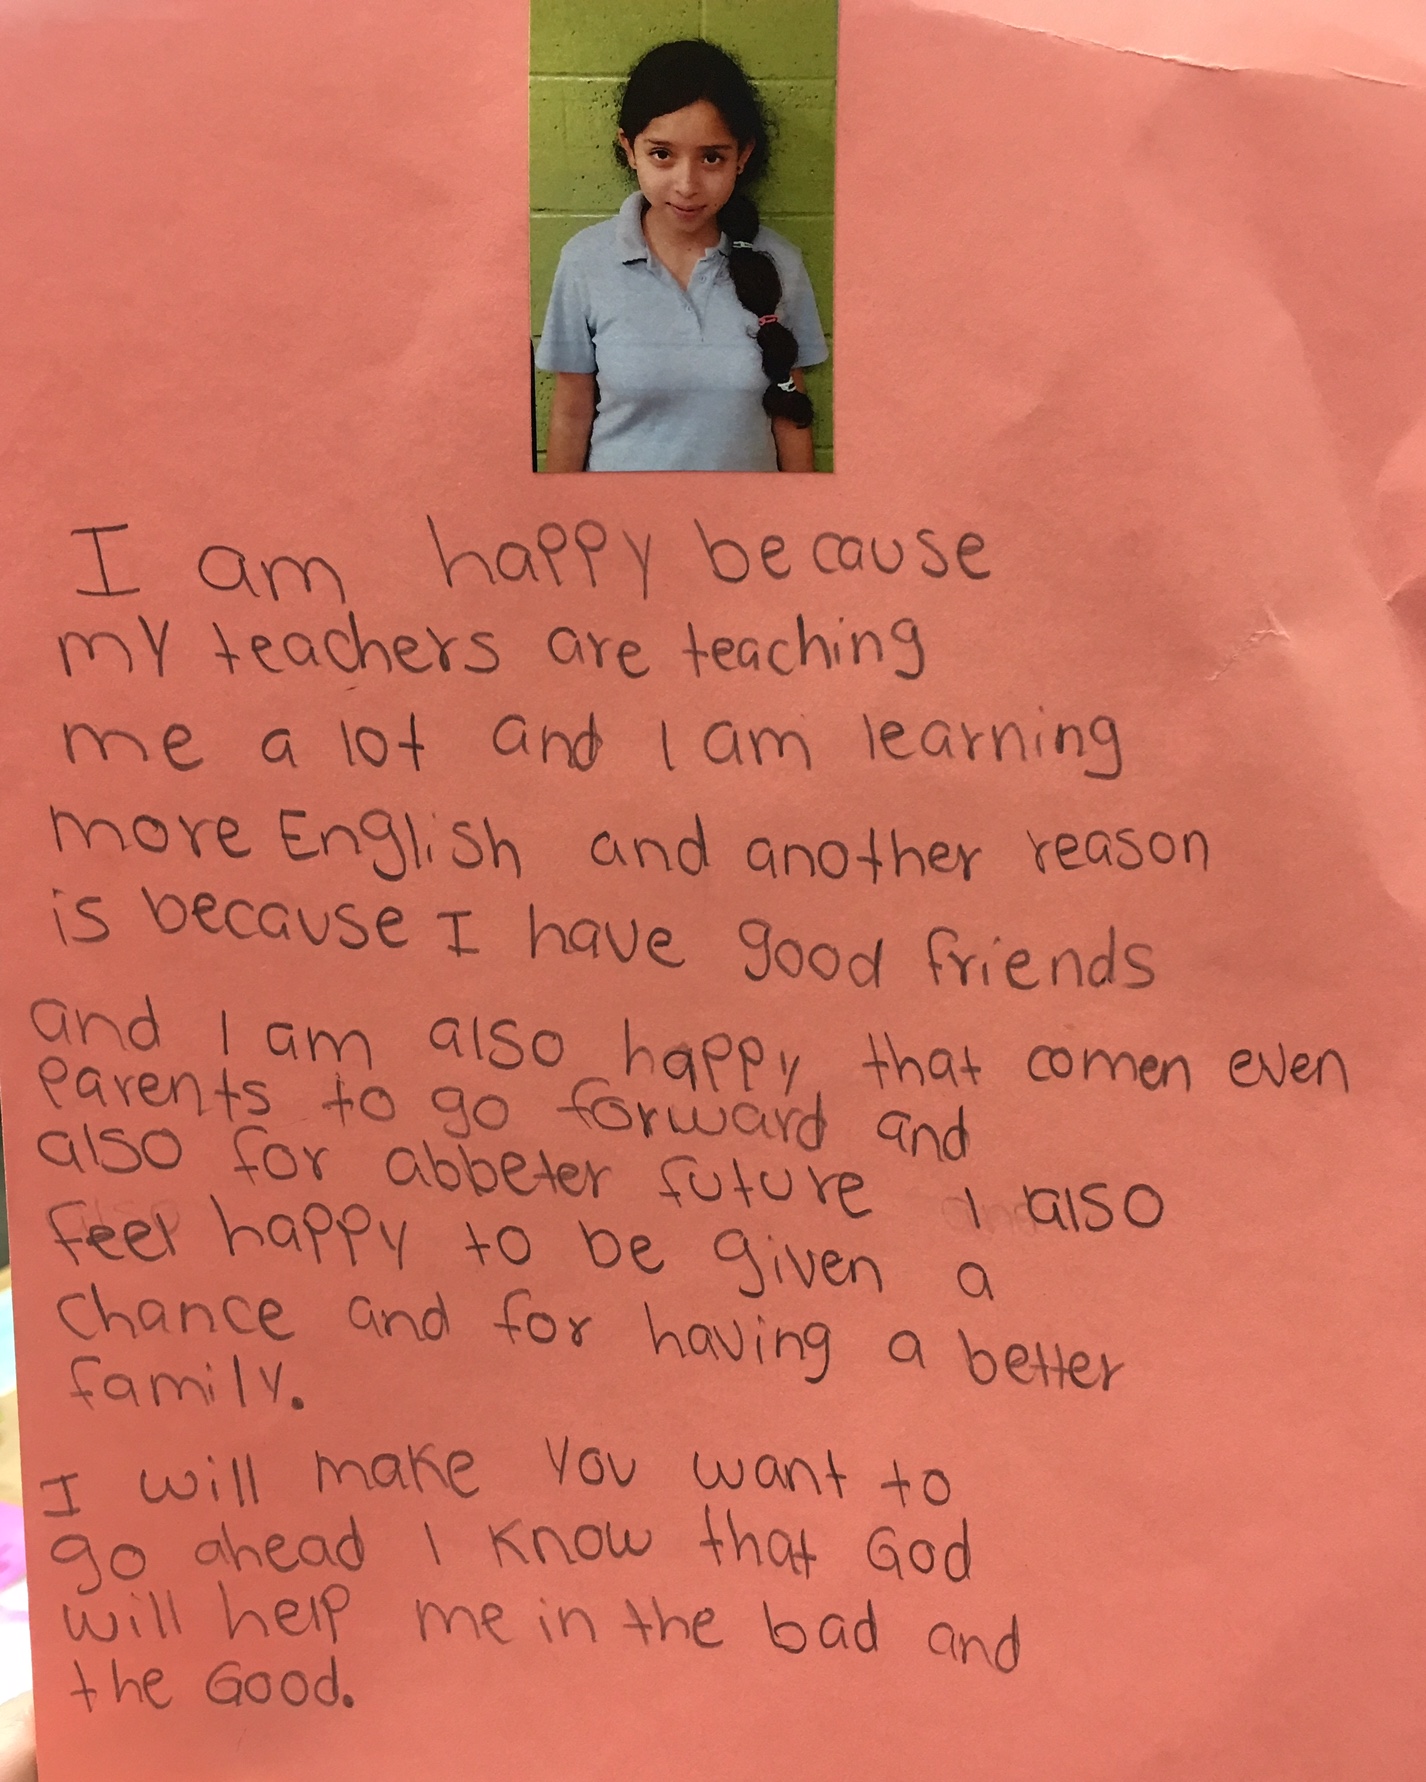 I am happy because
my teachers are teaching
me a lot and I am learning
more English and another reason
is because I have good friends
and I am also happy that comen even
parents to go forward and
also for abbeter future I also
feel happy to be given a
chance and for having a better
family.
I will make you want to
go ahead I know that God
will help me in the bad and
the Good.